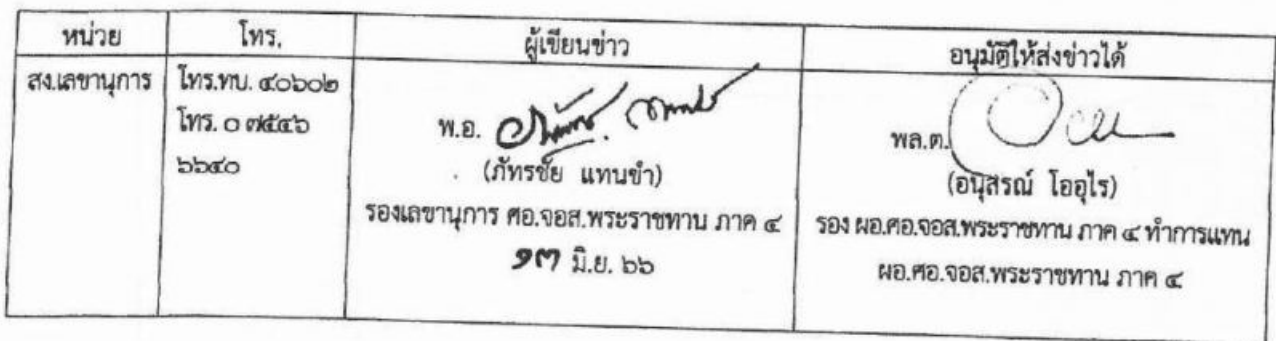 หน่วย โทร. ผู้เขียนข่าว อนุมัติให้ส่งข่าวได้
สง.เลขานุการ
โทร.ทบ. ๔๐๖๐๒
โทร. ๐ ๗๕๔๖
๖๖๔๐
พ.อ.
(ภัทรชัย แทนขำ)
รองเลขานุการ ศอ.จอส.พระราชทาน ภาค ๔
๑๓ มิ.ย. ๖๖
พล.ต.
(อนุสรณ์ โออุไร)
รอง ผอ.ศอ.จอส.พระราชทาน ภาค ๔ ทำการแทน
ผอ.ศอ.จอส.พระราชทาน ภาค ๔